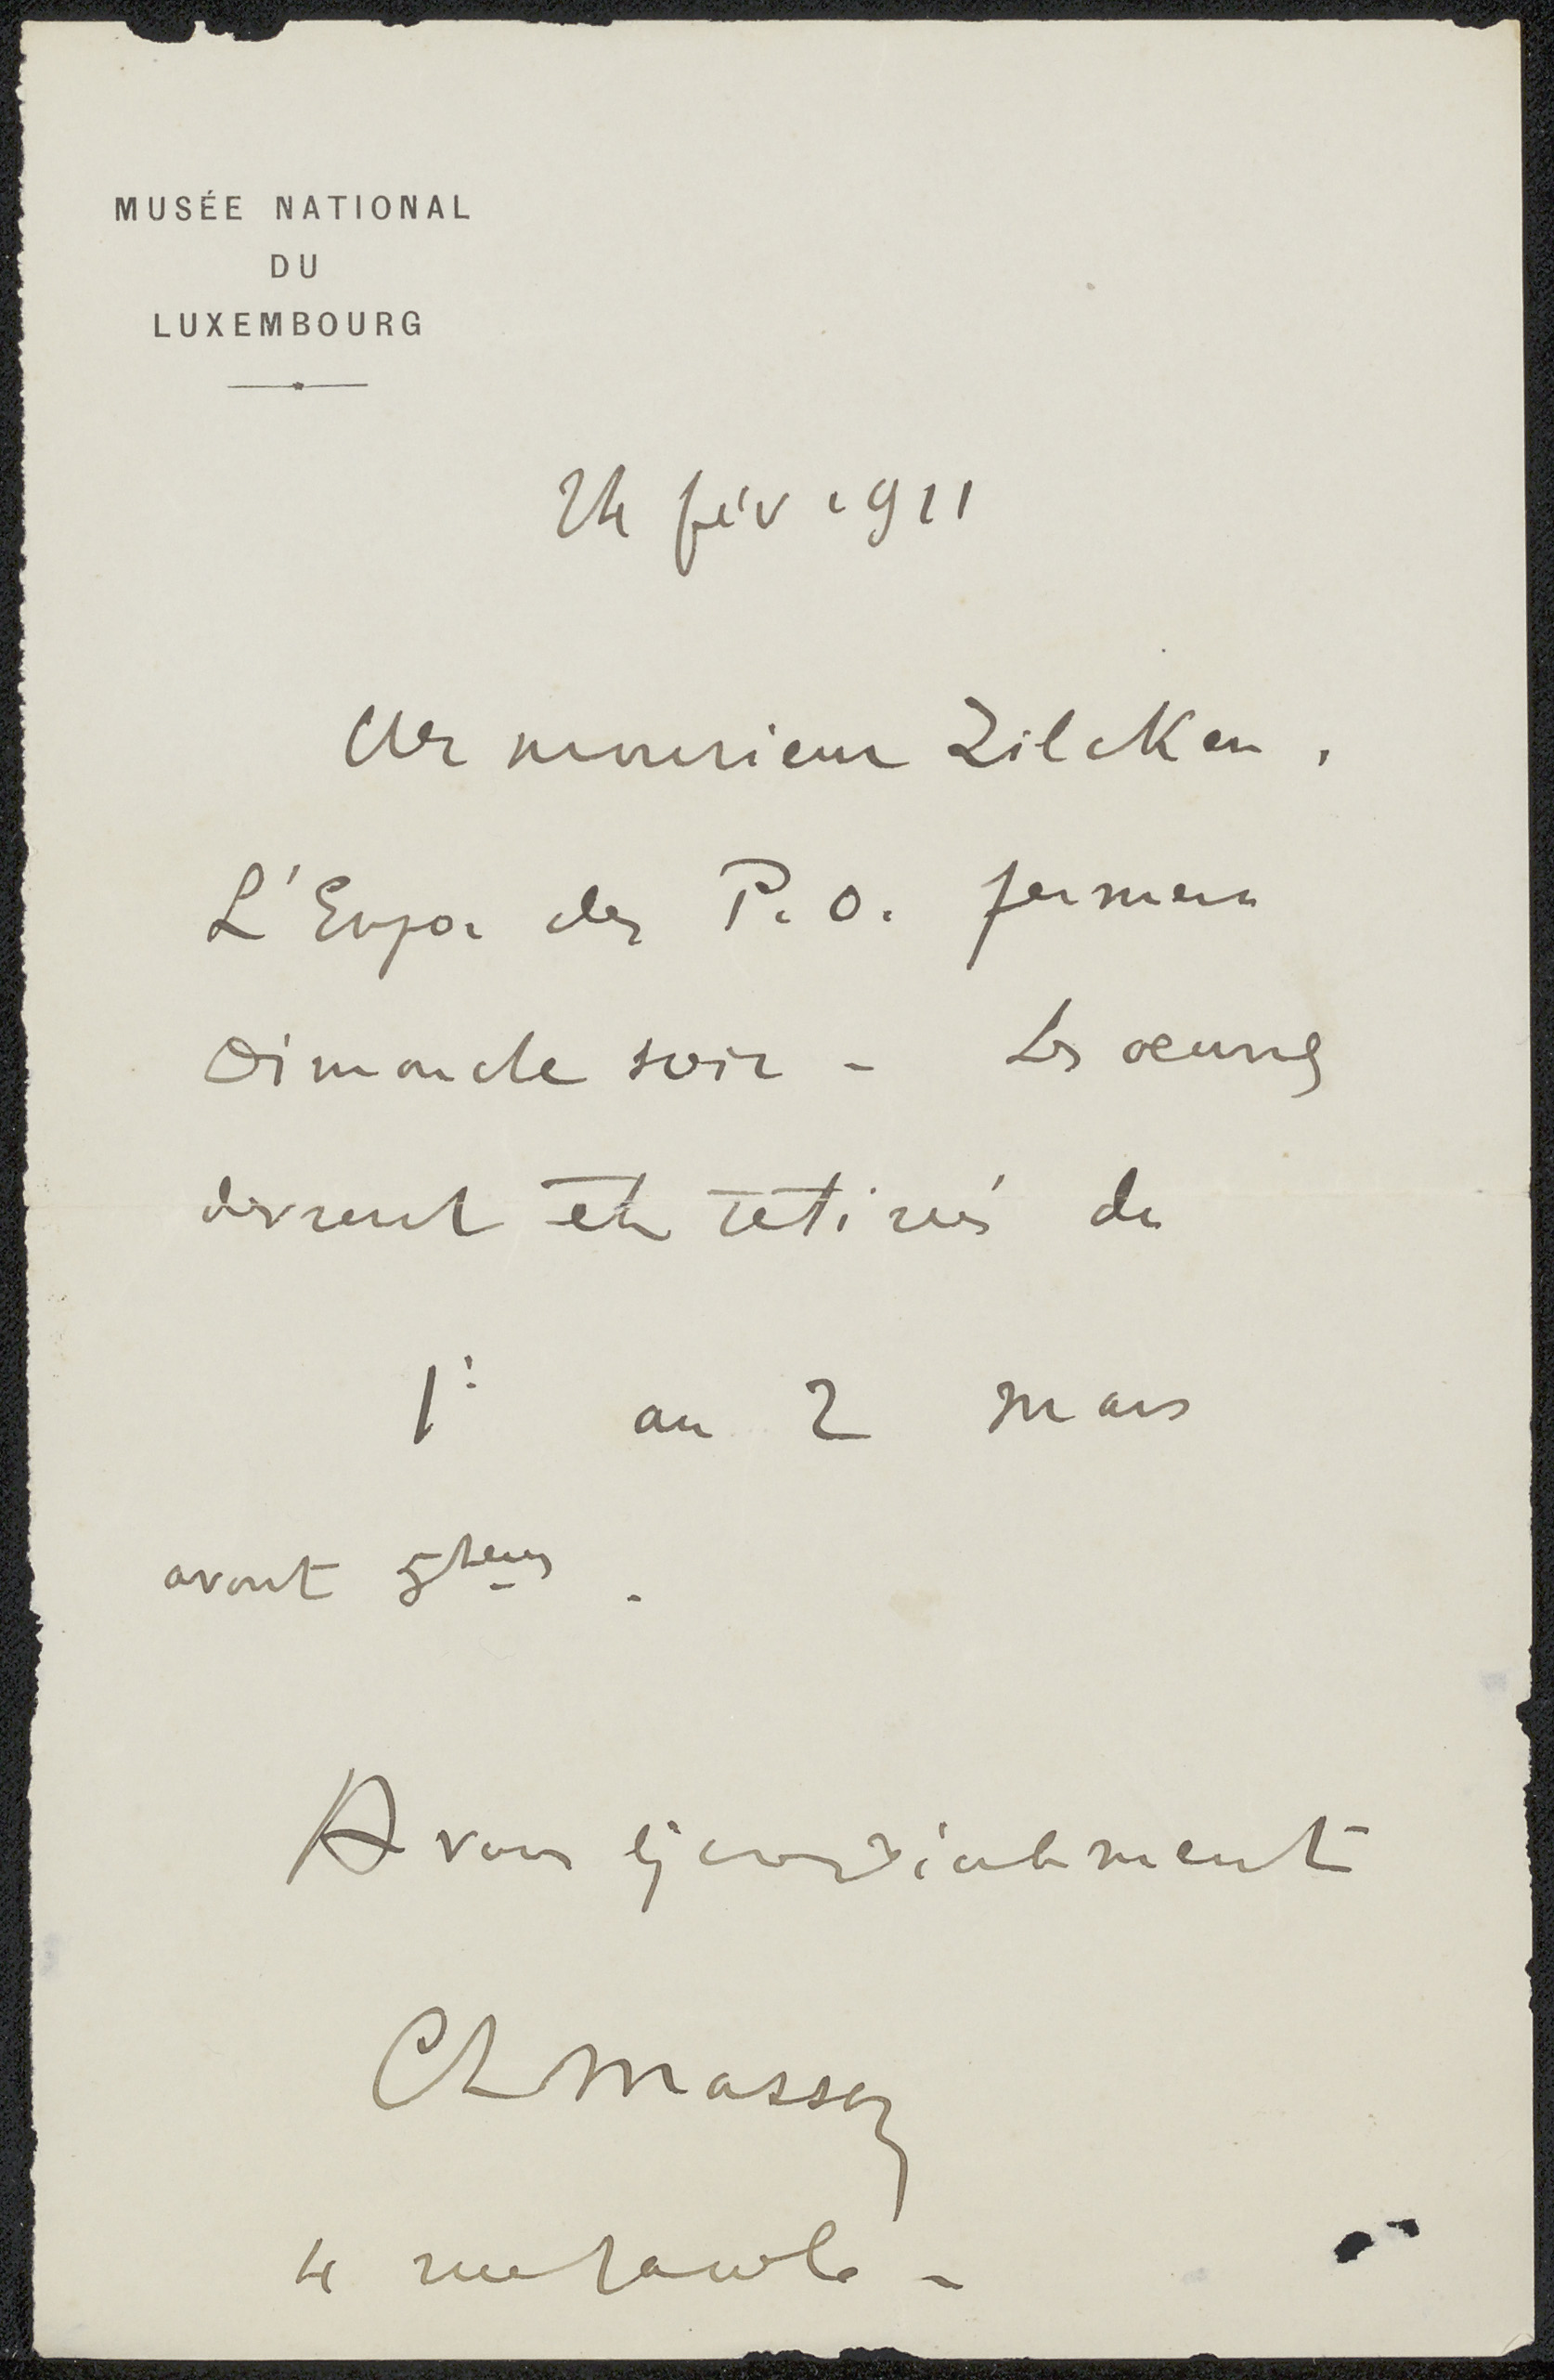 MUSÉE NATIONAL
DU
LUXEMBOURG
24 fév 1911
Cher monsieur Zilcken,
L'Expo des P. O. fermera
Dimanche soir - Les oeuvres
devront être retirés du
1er au 2 mars
avant 5 heures.
A vous cordialement
Ch Masson
4 rue